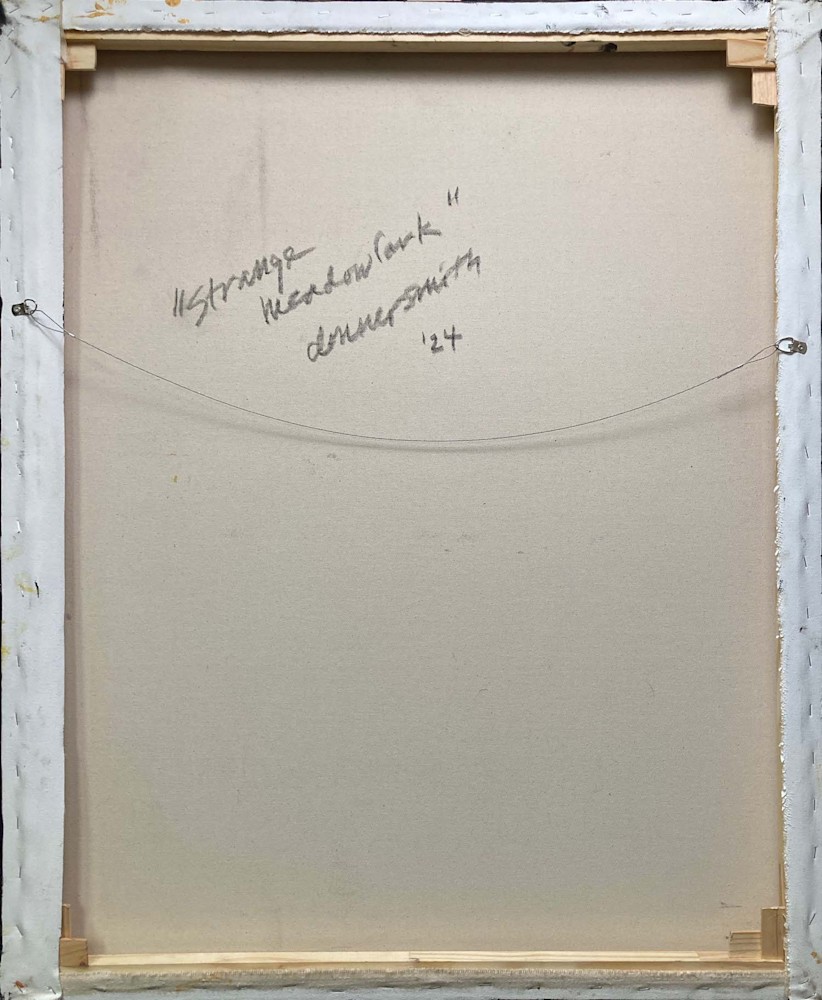 "Strange
meadowlark"
donnersmith
'24